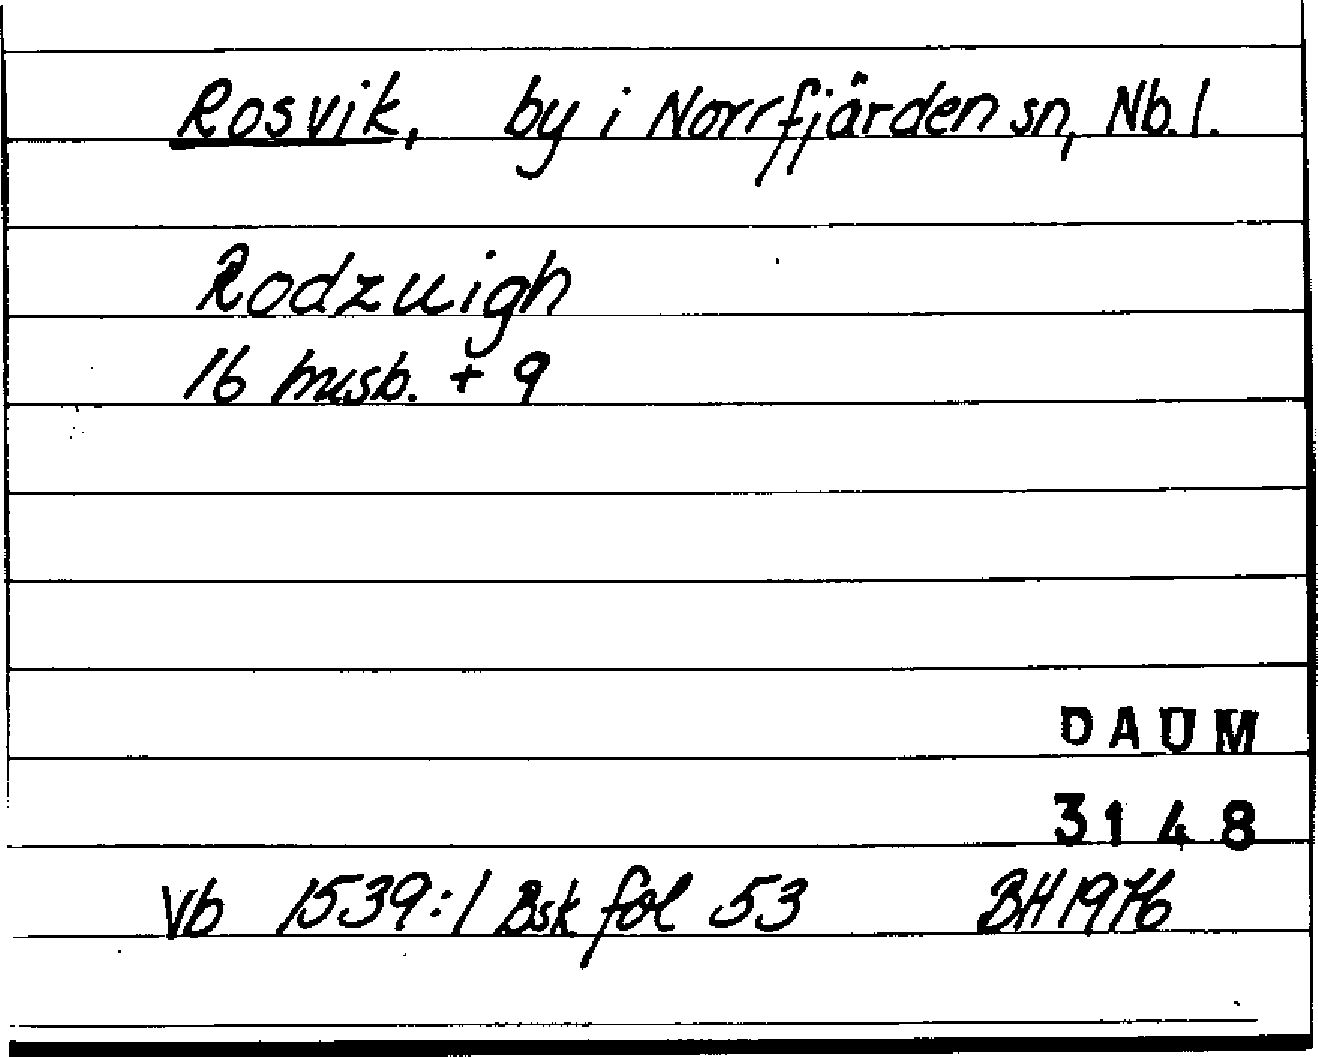 Rosvik, by i Norrfjärden sn, Nb. l.
Rodzuigh
16 husb. + 9
DAUM
3148
Vb 1539:1 Bsk fol 53 BH 1976